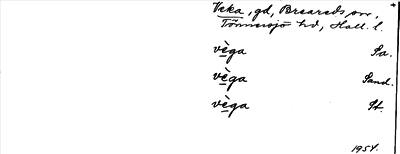 Veka, gd, Breareds sn,
Tönnersjö hd, Hall. l.
vèga Sa.
vèga Sand.
vèga St.
1954.